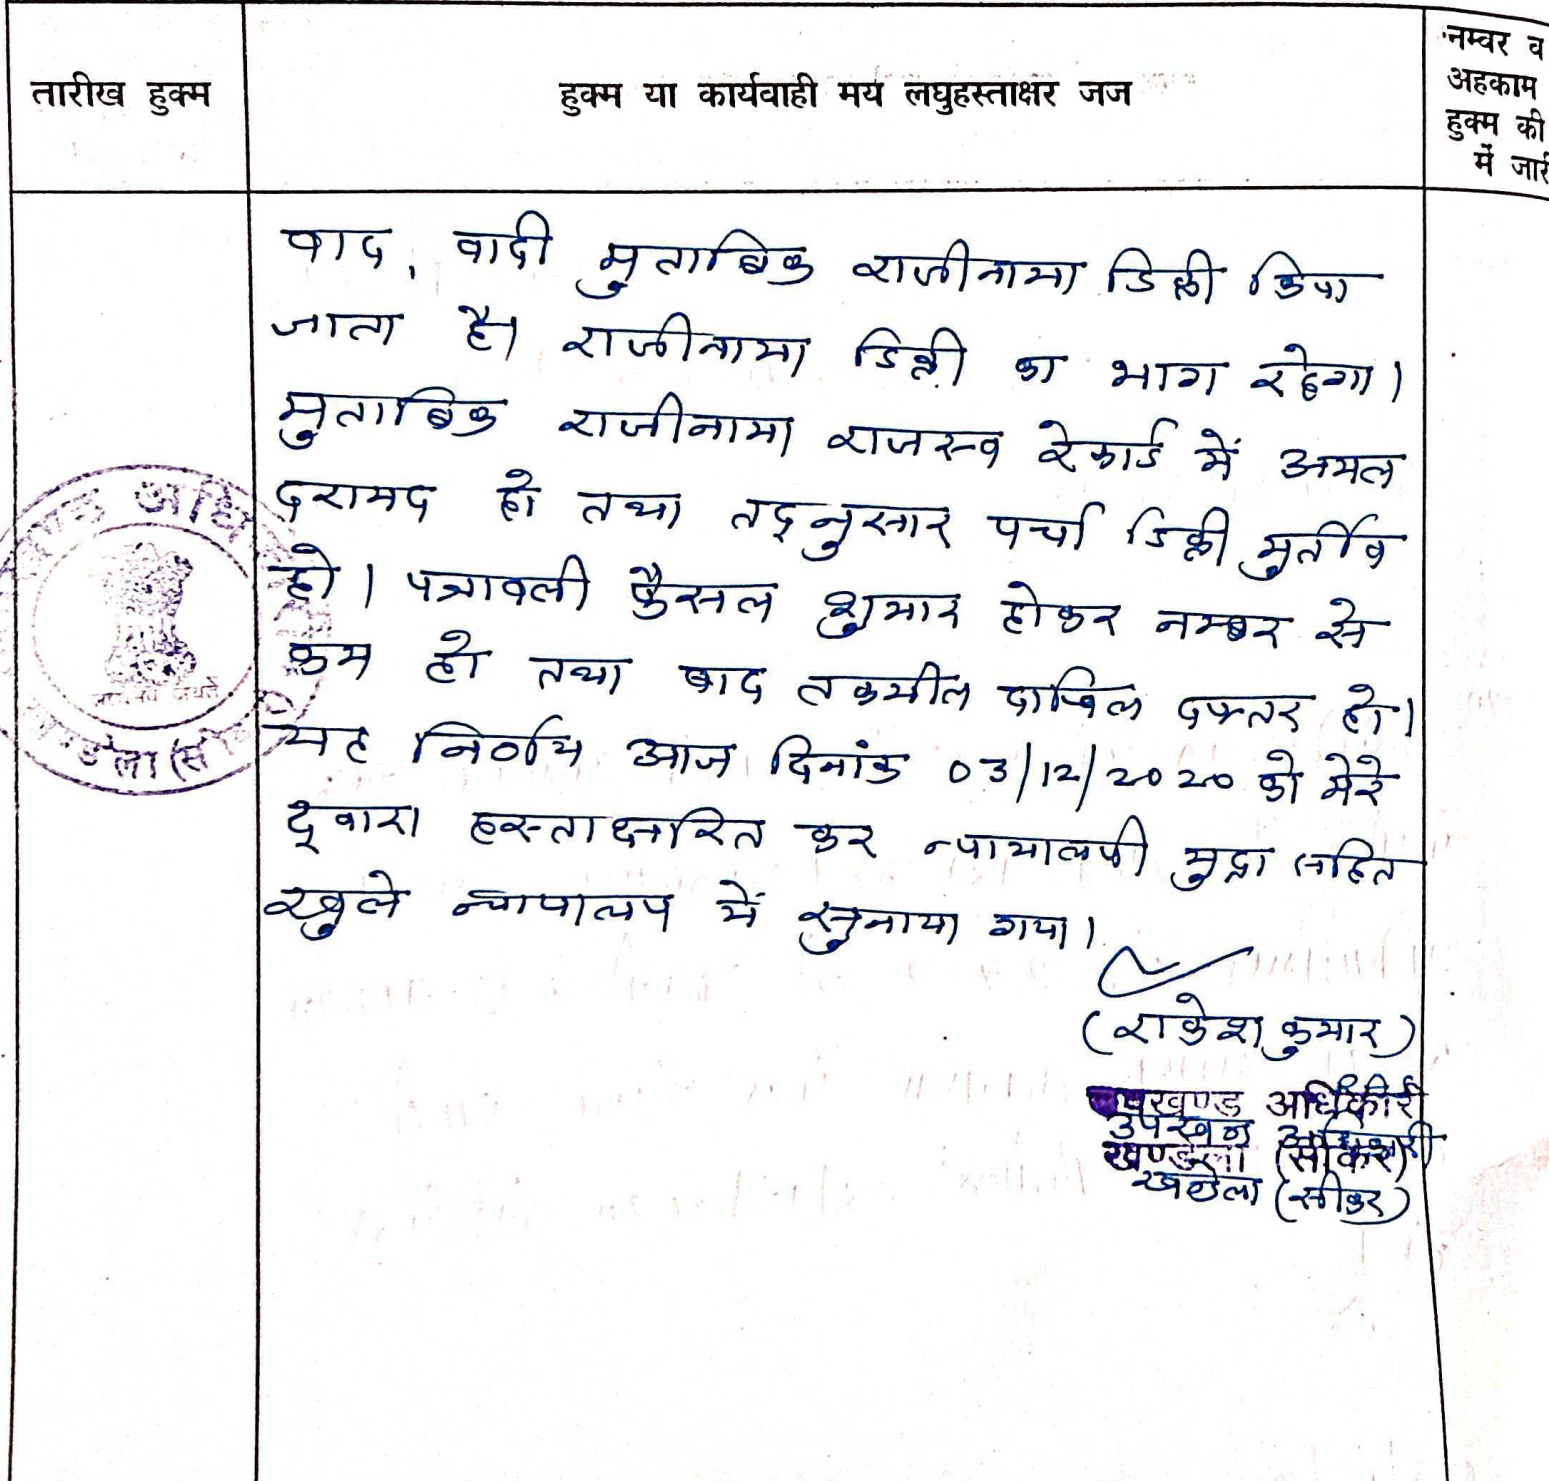 तारीख हुक्म
हुक्म या कार्यवाही मय लघुहस्ताक्षर जज
नम्वर व
अहकाम
हुक्म की
में जारी
वाद, वादी मुताबिक राजीनामा डिक्री किया
जाता है। राजीनामा डिक्री का भाग रहेगा।
मुताबिक राजीनामा राजस्व रेकार्ड में अमल
दरामद हो तथा तद्नुसार पर्चा डिक्री मुर्तीब
हो। पत्रावली फैसल शुमार होकर नम्बर से
कम हो तथा बाद तकमील दाखिल दफ्तर हो।
यह निर्णय आज दिनांक 03/12/2020 को मेरे
द्वारा हस्ताक्षरित कर न्यायालयी मुद्रा सहित
खुले न्यायालय में सुनाया गया।
(राकेश कुमार)
उपखण्ड अधिकारी
उपखण्ड अधिकारी
खण्डेला (सीकर)
खण्डेला (सीकर)